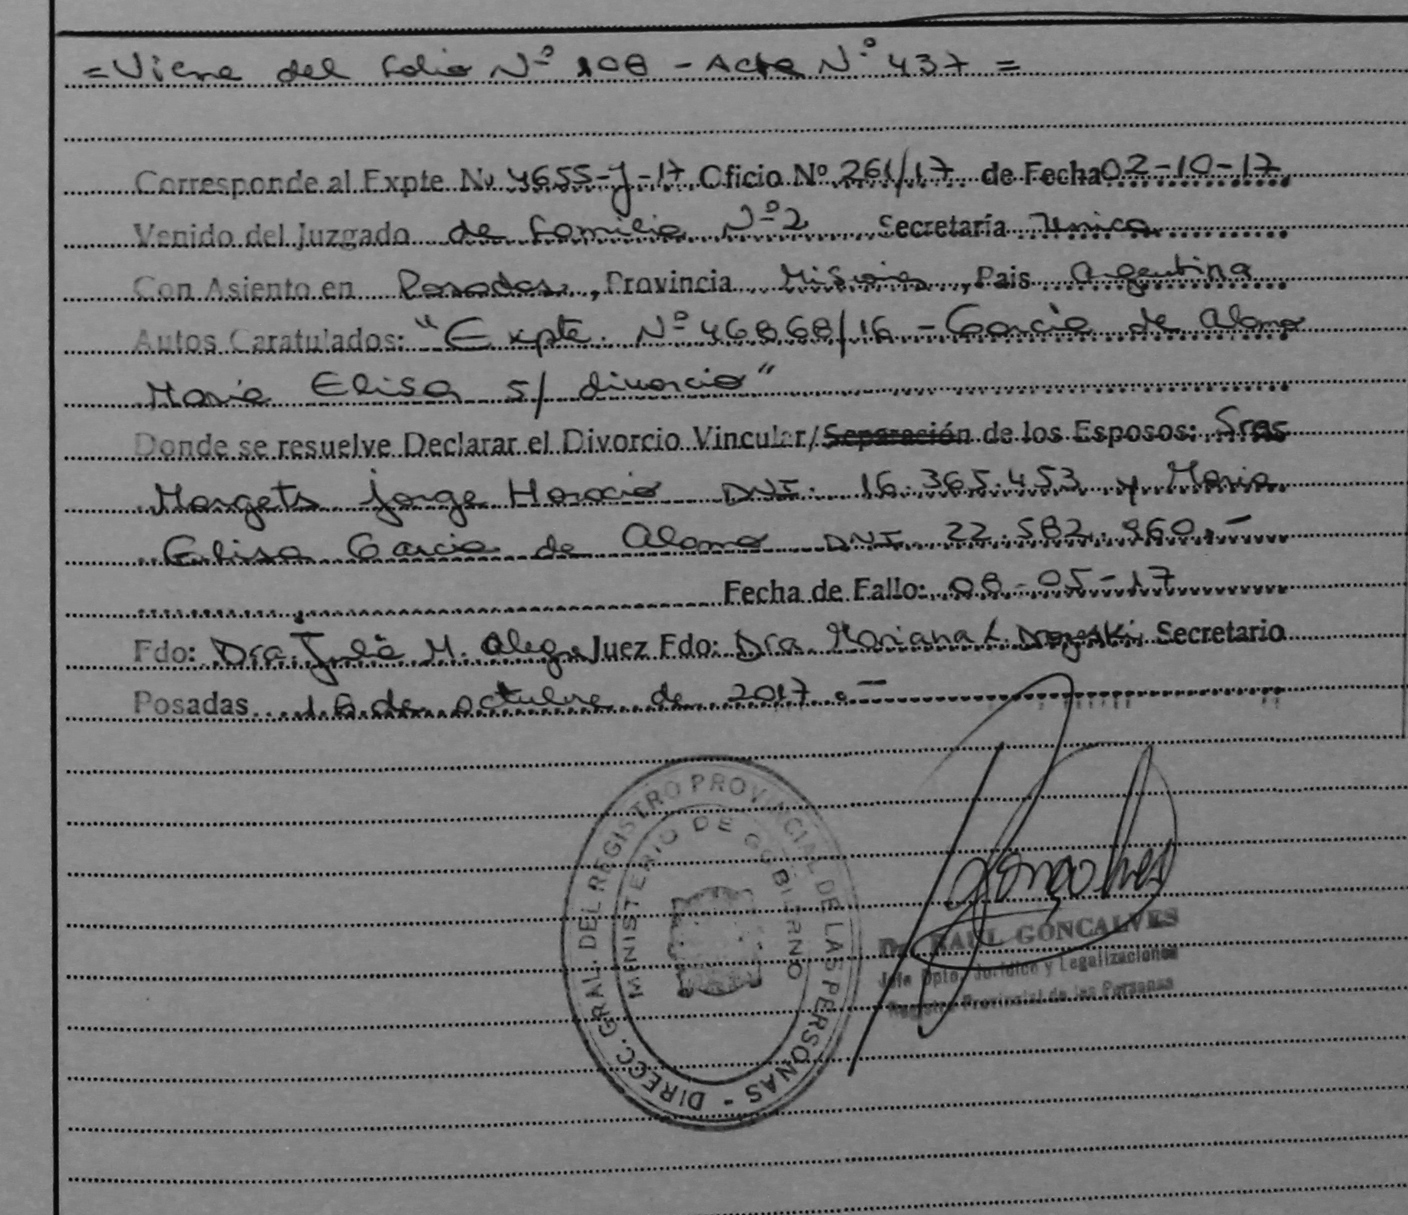 =Viene del folio Nº 108 - Acta Nº 437 =
Corresponde al Expte Nº 4655-J-17 Oficio Nº 261/17 de Fecha 02-10-17
Venido del Juzgado de Familia Nº 2 Secretaría Unica
Con Asiento en Posadas, Provincia Misiones, Pais Argentina
Autos Caratulados: "Expte. Nº 46868/16 - Garcia de Alamo
Maria Elisa s/ divorcio"
Donde se resuelve Declarar el Divorcio Vincular/Separación de los Esposos: Sres
Margets Jorge Horacio DNI. 16.365.453 y Maria
Elisa Garcia de Alamo DNI 22.582.960.-
Fecha de Fallo: 08-05-17
Fdo: Dra. Julia M. Alegre Juez Fdo: Dra Mariana L. Secretario
Posadas 18 de octubre de 2017.-
DIRECC. GRAL. DEL REGISTRO PROVINCIAL DE LAS PERSONAS -
MINISTERIO DE GOBIERNO
Dr. RAUL GONCALVES
Jefe Dpto. Jurídico y Legalizaciones
Registro Provincial de las Personas